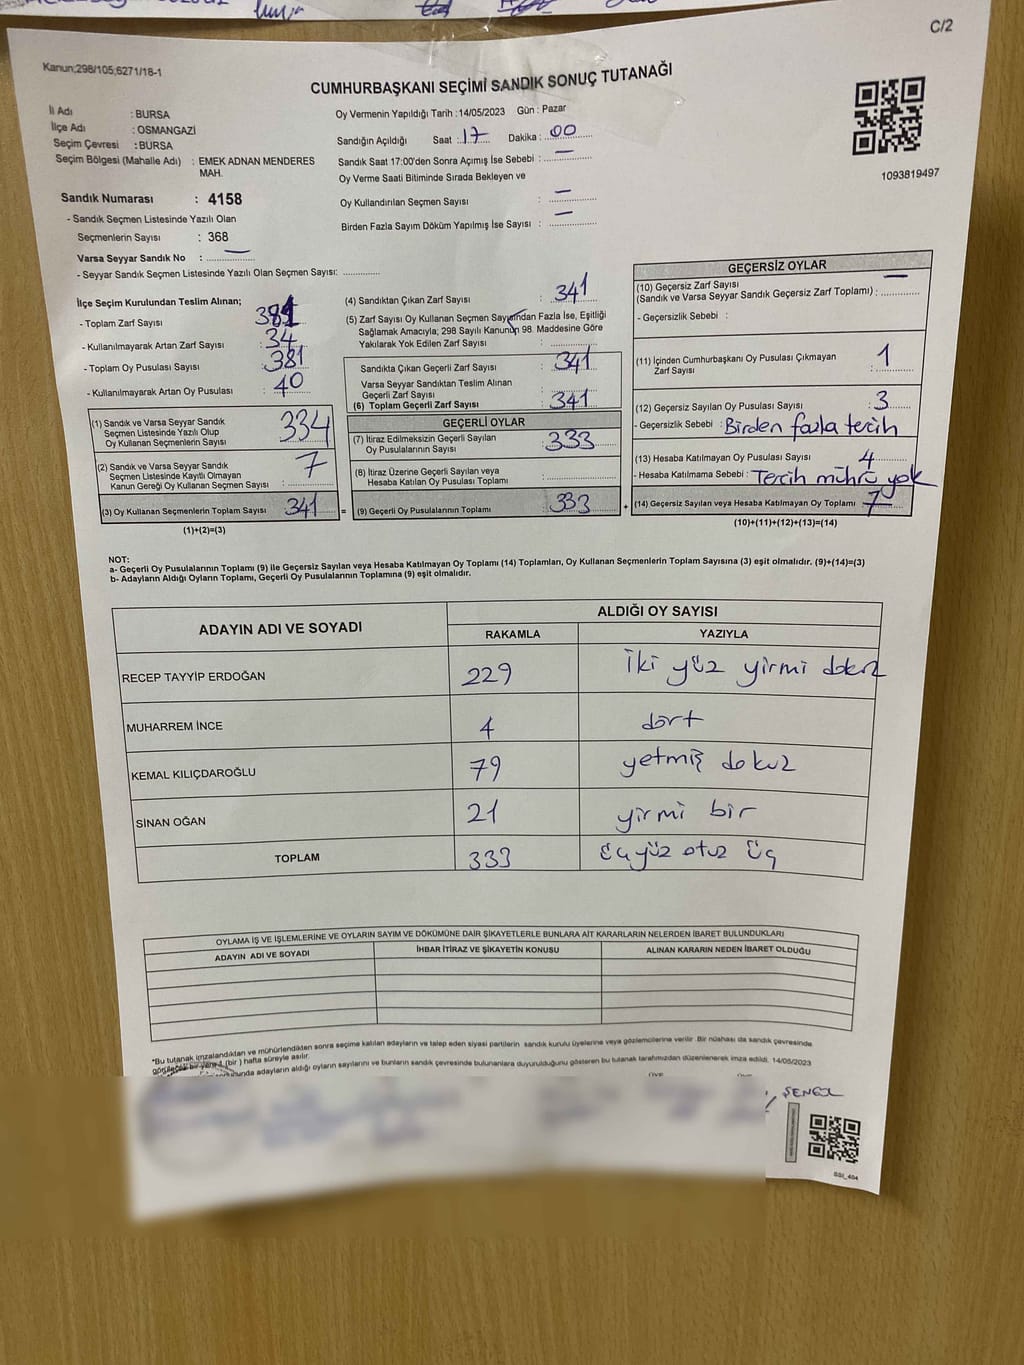 C/2
Kanun;298/105;6271/18-1
CUMHURBAŞKANI SEÇİMİ SANDIK SONUÇ TUTANAĞI
İl Adı : BURSA
İlçe Adı : OSMANGAZİ
Seçim Çevresi : BURSA
Seçim Bölgesi (Mahalle Adı) : EMEK ADNAN MENDERES
MAH.
Sandık Numarası : 4158
- Sandık Seçmen Listesinde Yazılı Olan
Seçmenlerin Sayısı : 368
Varsa Seyyar Sandık No : —
- Seyyar Sandık Seçmen Listesinde Yazılı Olan Seçmen Sayısı: ..............
Oy Vermenin Yapıldığı Tarih :14/05/2023 Gün : Pazar
Sandığın Açıldığı Saat : 17 Dakika : 00
Sandık Saat 17:00'den Sonra Açımış İse Sebebi : —
Oy Verme Saati Bitiminde Sırada Bekleyen ve
Oy Kullandırılan Seçmen Sayısı : —
Birden Fazla Sayım Döküm Yapılmış İse Sayısı : —
1093819497
İlçe Seçim Kurulundan Teslim Alınan;
- Toplam Zarf Sayısı :
- Kullanılmayarak Artan Zarf Sayısı : 34
- Toplam Oy Pusulası Sayısı : 381
- Kullanılmayarak Artan Oy Pusulası : 40
(1) Sandık ve Varsa Seyyar Sandık
Seçmen Listesinde Yazılı Olup
Oy Kullanan Seçmenlerin Sayısı : 334
(2) Sandık ve Varsa Seyyar Sandık
Seçmen Listesinde Kayıtlı Olmayan
Kanun Gereği Oy Kullanan Seçmen Sayısı : 7
(3) Oy Kullanan Seçmenlerin Toplam Sayısı : 341 =
(1)+(2)=(3)
(4) Sandıktan Çıkan Zarf Sayısı : 341
(5) Zarf Sayısı Oy Kullanan Seçmen Sayısından Fazla İse, Eşitliği
Sağlamak Amacıyla; 298 Sayılı Kanunun 98. Maddesine Göre
Yakılarak Yok Edilen Zarf Sayısı :
Sandıkta Çıkan Geçerli Zarf Sayısı : 341
Varsa Seyyar Sandıktan Teslim Alınan
Geçerli Zarf Sayısı :
(6) Toplam Geçerli Zarf Sayısı : 341
GEÇERLİ OYLAR
(7) İtiraz Edilmeksizin Geçerli Sayılan
Oy Pusulalarının Sayısı : 333
(8) İtiraz Üzerine Geçerli Sayılan veya
Hesaba Katılan Oy Pusulası Toplamı :
(9) Geçerli Oy Pusulalarının Toplamı : 333 +
GEÇERSİZ OYLAR
(10) Geçersiz Zarf Sayısı
(Sandık ve Varsa Seyyar Sandık Geçersiz Zarf Toplamı) : —
- Geçersizlik Sebebi :
(11) İçinden Cumhurbaşkanı Oy Pusulası Çıkmayan
Zarf Sayısı : 1
(12) Geçersiz Sayılan Oy Pusulası Sayısı : 3
- Geçersizlik Sebebi : Birden fazla tercih
(13) Hesaba Katılmayan Oy Pusulası Sayısı : 4
- Hesaba Katılmama Sebebi : Tercih mührü yok
(14) Geçersiz Sayılan veya Hesaba Katılmayan Oy Toplamı : 7
(10)+(11)+(12)+(13)=(14)
NOT:
a- Geçerli Oy Pusulalarının Toplamı (9) ile Geçersiz Sayılan veya Hesaba Katılmayan Oy Toplamı (14) Toplamları, Oy Kullanan Seçmenlerin Toplam Sayısına (3) eşit olmalıdır. (9)+(14)=(3)
b- Adayların Aldığı Oyların Toplamı, Geçerli Oy Pusulalarının Toplamına (9) eşit olmalıdır.
ADAYIN ADI VE SOYADI ALDIĞI OY SAYISI
RAKAMLA YAZIYLA
RECEP TAYYİP ERDOĞAN 229 iki yüz yirmi dokuz
MUHARREM İNCE 4 dört
KEMAL KILIÇDAROĞLU 79 yetmiş dokuz
SİNAN OĞAN 21 yirmi bir
TOPLAM 333 üçyüz otuz üç
OYLAMA İŞ VE İŞLEMLERİNE VE OYLARIN SAYIM VE DÖKÜMÜNE DAİR ŞİKAYETLERLE BUNLARA AİT KARARLARIN NELERDEN İBARET BULUNDUKLARI
ADAYIN ADI VE SOYADI İHBAR İTİRAZ VE ŞİKAYETİN KONUSU ALINAN KARARIN NEDEN İBARET OLDUĞU
*Bu tutanak imzalandıktan ve mühürlendikten sonra seçime katılan adayların ve talep eden siyasi partilerin sandık kurulu üyelerine veya gözlemcilerine verilir. Bir nüshası da sandık çevresinde
görülecek bir yere 1 (bir) hafta süreyle asılır.
adayların aldığı oyların sayılarını ve bunların sandık çevresinde bulunanlara duyurulduğunu gösteren bu tutanak tarafımızdan düzenlenerek imza edildi. 14/05/2023
ŞENEL
SSI_404